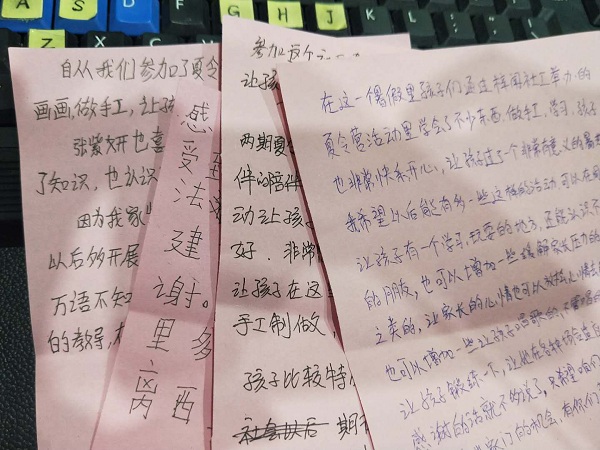 A
S
D
F
G
Z
自从我们参加了夏令
画画,做手工,让孩
张紫妍也喜
了知识,也认识
因为我家
以后够开展
万语不知
的教导,
感
受到
法
建
谢。
里多
离西
参加这个
让孩
两期夏
伴的陪伴
动让孩
好.非常
让孩子在这
手工制做,
孩子比较特
期
在这一个暑假里孩子们通过梓园社工举办的
夏令营活动里学会了不少东西,做手工,学习,孩子
也非常快乐开心,让孩子过了一个非常有意义的暑
我希望以后能有多一些这样的活动,可以在
让孩子有一个学习,玩耍的地方,还能认识不
的朋友,也可以增加一些缓解家长压力的
之类的,让家长的心情也可以
也可以增加一些让孩子唱歌的,
让孩子锻练一下,让他在各种场
感谢的话就不多说了,只希望咱们
的机会,有你们